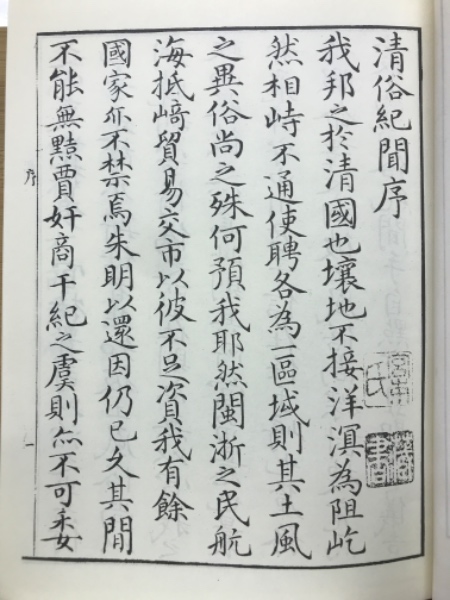 清俗紀聞序
我邦之於清國也壤地不接洋溟為阻屹
然相峙不通使聘各為一區域則其土風
之異俗尚之殊何預我耶然閩浙之民航
海抵﨑貿易交市以彼不足資我有餘
國家亦不禁焉朱明以還因仍已久其間
不能無黠賈奸商干紀之虞則亦不可委
序
一